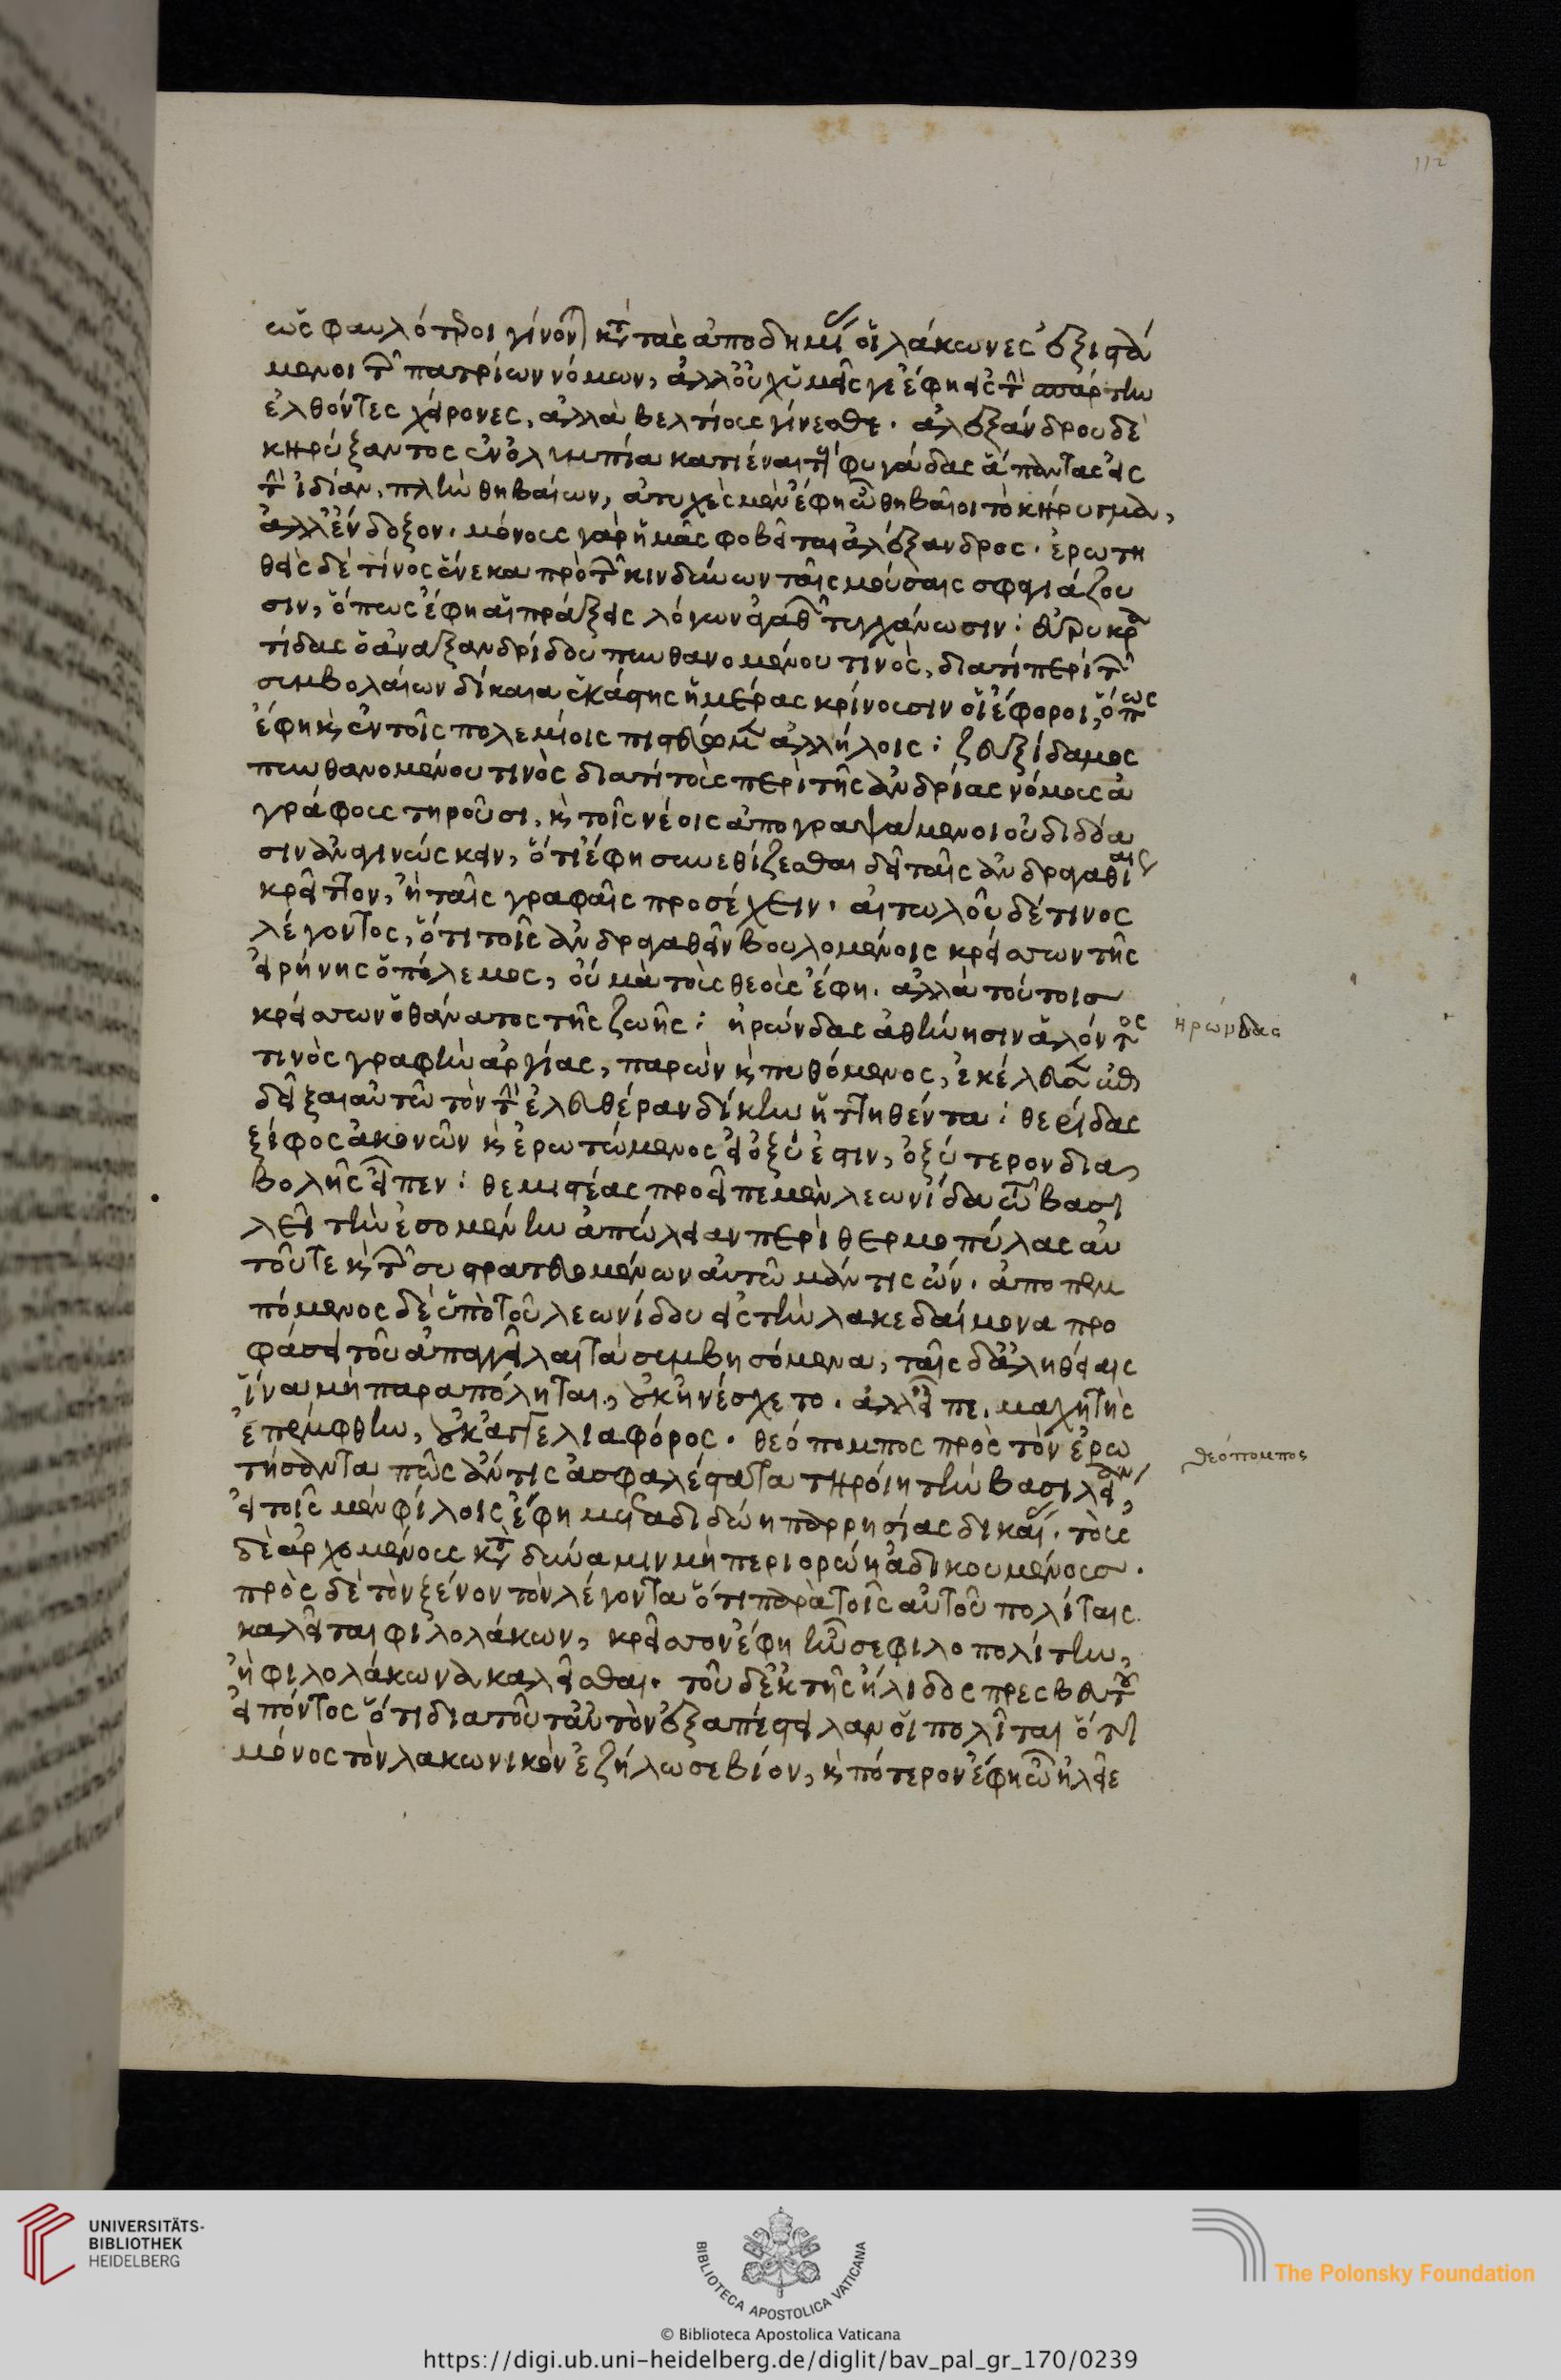 112
ὡς φαυλότεροι γίνονται κατὰ τὰς ἀποδημίας οἱ λάκωνες ἐξιστά
μενοι τῶν πατρίων νόμων, ἀλλ' οὐχ ὑμεῖς γε ἔφη εἰς τὴν σπάρτην
ἐλθόντες χείρονες, ἀλλὰ βελτίους γίνεσθε. ἀλεξάνδρου δὲ
κηρύξαντος ἐν ὀλυμπία κατιέναι τοὺς φυγάδας ἅπαντας εἰς
τὴν ἰδίαν, πλὴν θηβαίων, ἀτυχὲς μὲν ἔφη ὦ θηβαῖοι τὸ κήρυγμα,
ἀλλ' ἔνδοξον. μόνους γὰρ ὑμᾶς φοβεῖται ἀλέξανδρος. ἐρωτη
θεὶς δὲ τίνος ἕνεκα πρὸ τῶν κινδύνων ταῖς μούσαις σφαγιάζου
σιν, ὅπως ἔφη αἱ πράξεις λόγων ἀγαθῶν τυγχάνωσιν: εὐρυκρα
τίδας ὁ ἀναξανδρίδου πυνθανομένου τινὸς, διατί περὶ τῶν
συμβολαίων δίκαια ἑκάστης ἡμέρας κρίνουσιν οἱ ἔφοροι, ὅπως
ἔφη καὶ ἐν τοῖς πολεμίοις πιστεύωμεν ἀλλήλοις: ζευξίδαμος
πυνθανομένου τινὸς διατί τοὺς περὶ τῆς ἀνδρίας νόμους ἀ
γράφους τηροῦσι, καὶ τοῖς νέοις ἀπογραψάμενοι οὐ διδόα
σιν ἀναγινώσκειν, ὅτι ἔφη συνεθίζεσθαι δεῖ ταῖς ἀνδραγαθίαις
κρεῖττον, ἢ ταῖς γραφαῖς προσέχειν. αἰτωλοῦ δέ τινος
λέγοντος, ὅτι τοῖς ἀνδραγαθεῖν βουλομένοις κρείσσων τῆς
εἰρήνης ὁ πόλεμος, οὐ μὰ τοὺς θεοὺς ἔφη. ἀλλὰ τούτοις
κρείσσων ὁ θάνατος τῆς ζωῆς: ἡρώνδας ἀθήνησιν ἁλόντος
τινὸς γραφὴν ἀργίας, παρὼν καὶ πυθόμενος, ἐκέλευσεν
δεῖξαι αὐτῶ τὸν τὴν ἐλευθέραν δίκην ἡττηθέντα: θερίδας
ξίφος ἀκονῶν καὶ ἐρωτώμενος εἰ ὀξύ ἐστιν, ὀξύτερον δια
βολῆς εἶπεν: θεμιστέας προεῖπε μὲν λεωνίδα τῶ βασι
λεῖ τὴν ἐσομένην ἀπώλειαν περὶ θερμοπύλας αὐ
τοῦ τε καὶ τῶν συστρατευομένων αὐτῶ μάντις ὤν. ἀποπεμ
πόμενος δὲ ὑπὸ τοῦ λεωνίδου εἰς τὴν λακεδαίμονα προ
φάσει τοῦ ἀπαγγεῖλαι τὰ συμβησόμενα, ταῖς δ' ἀληθείαις
ἵνα μὴ παραπόληται, οὐκ ἠνέσχετο. ἀλλ' εἶπε. μαχητὴς
ἐπέμφθην, οὐκ ἀγγελιαφόρος. θεόπομπος πρὸς τὸν ἐρω
τήσαντα πῶς ἄν τις ἀσφαλέστατα τηροίη τὴν βασιλείαν,
εἰ τοῖς μὲν φίλοις ἔφη μεταδιδώη παρρησίας δικαίας. τοὺς
δὲ ἀρχομένους κατὰ δύναμιν μὴ περιορώη ἀδικουμένους.
πρὸς δὲ τὸν ξένον τὸν λέγοντα ὅτι παρὰ τοῖς αὐτοῦ πολίταις
καλεῖται φιλολάκων, κρεῖσσον ἔφη ἦν σε φιλοπολίτην,
ἢ φιλολάκωνα καλεῖσθαι. τοῦ δ' ἐκ τῆς ἤλιδος πρεσβευτοῦ
εἰπόντος ὅτι διὰ τοῦτ' αὐτὸν ἐξαπέστειλαν οἱ πολῖται ὅτι
μόνος τὸν λακωνικὸν ἐζήλωσε βίον, καὶ πότερον ἔφη ὦ ἠλεῖε
ἡρώνδας
θεόπομπος
UNIVERSITÄTS-
BIBLIOTHEK
HEIDELBERG
BIBLIOTECA APOSTOLICA VATICANA
The Polonsky Foundation
© Biblioteca Apostolica Vaticana
https://digi.ub.uni-heidelberg.de/diglit/bav_pal_gr_170/0239